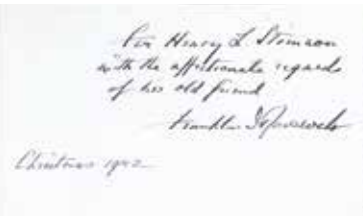 For Henry L. Stimson
with the affectionate regards
of his old friend
Franklin D Roosevelt
Christmas 1942